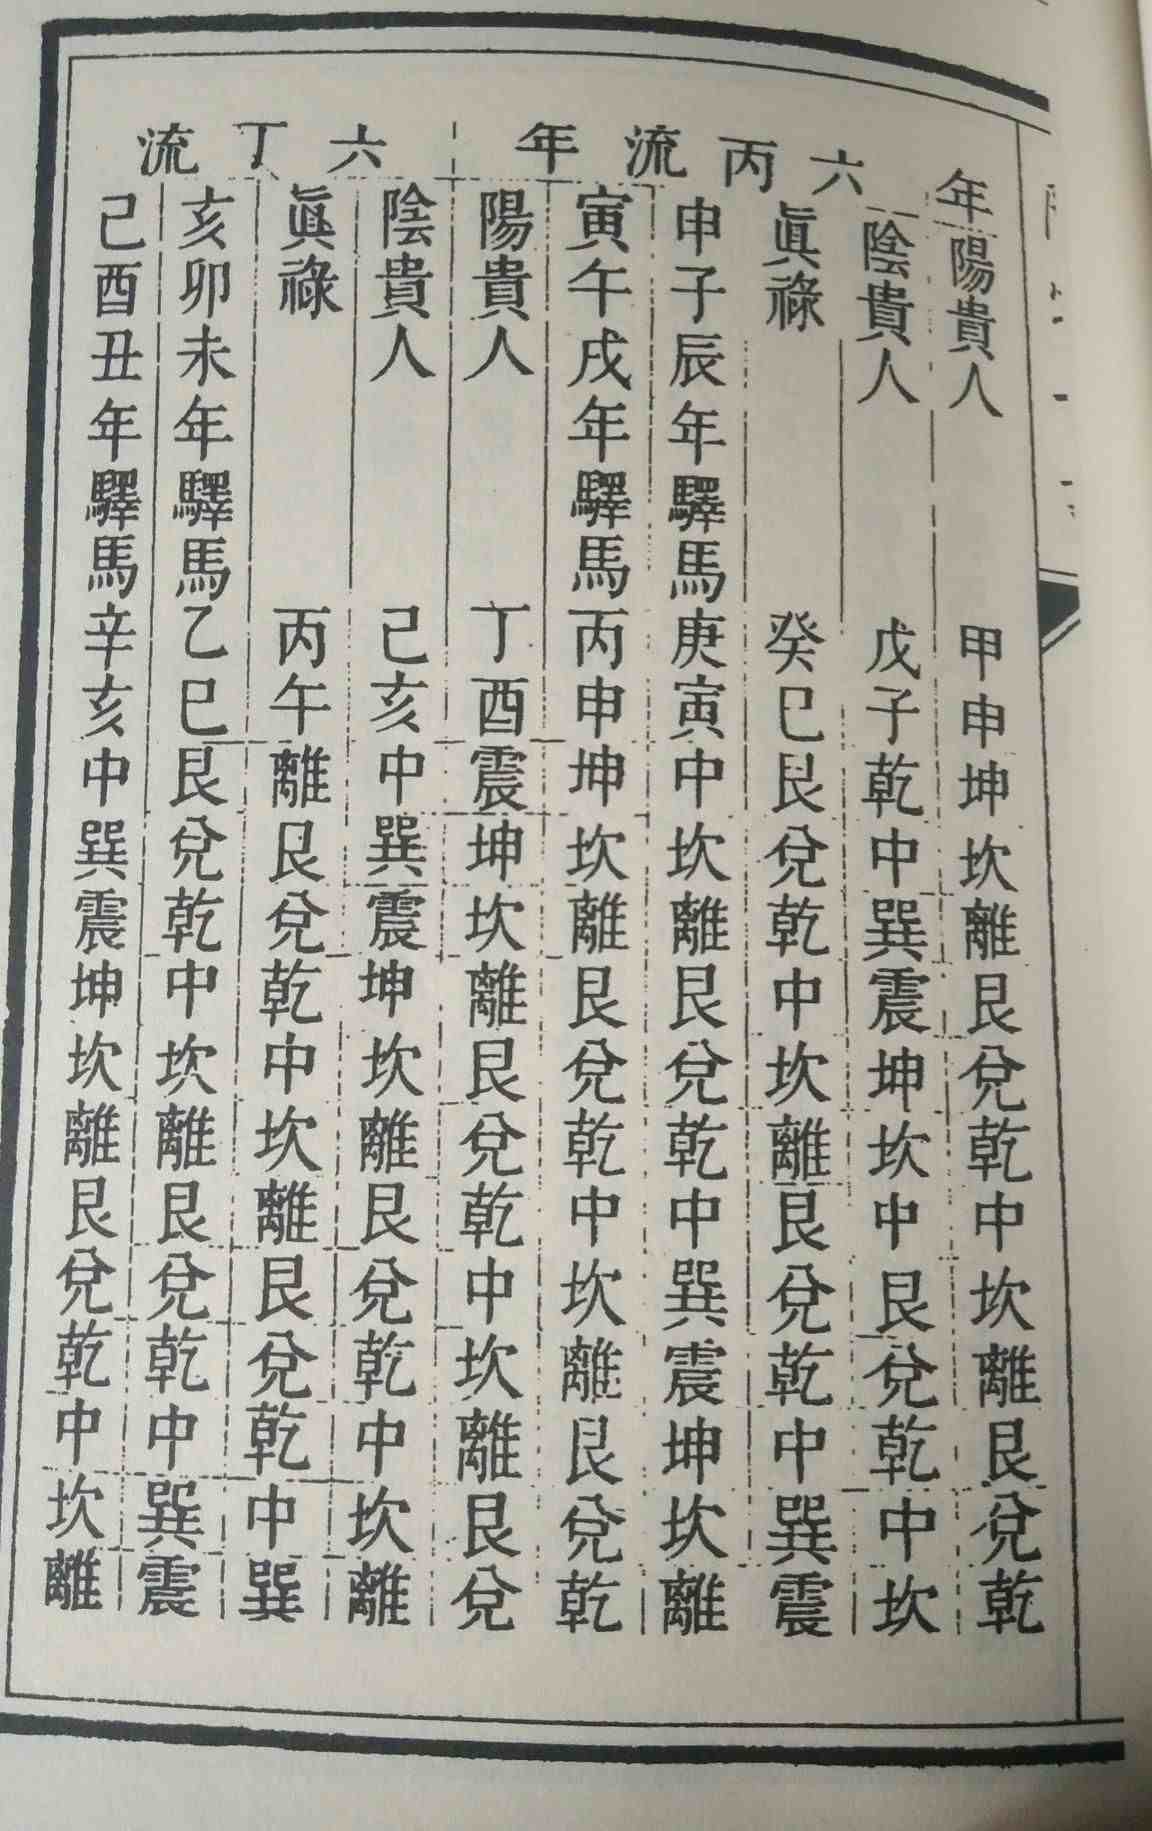 年
陽貴人 甲申坤坎離艮兌乾中坎離艮兌乾
六丙流年
陰貴人 戊子乾中巽震坤坎中艮兌乾中坎
眞祿 癸巳艮兌乾中坎離艮兌乾中巽震
申子辰年驛馬庚寅中坎離艮兌乾中巽震坤坎離
寅午戌年驛馬丙申坤坎離艮兌乾中坎離艮兌乾
陽貴人 丁酉震坤坎離艮兌乾中坎離艮兌
六丁流
陰貴人 己亥中巽震坤坎離艮兌乾中坎離
眞祿 丙午離艮兌乾中坎離艮兌乾中巽
亥卯未年驛馬乙巳艮兌乾中坎離艮兌乾中巽震
己酉丑年驛馬辛亥中巽震坤坎離艮兌乾中坎離